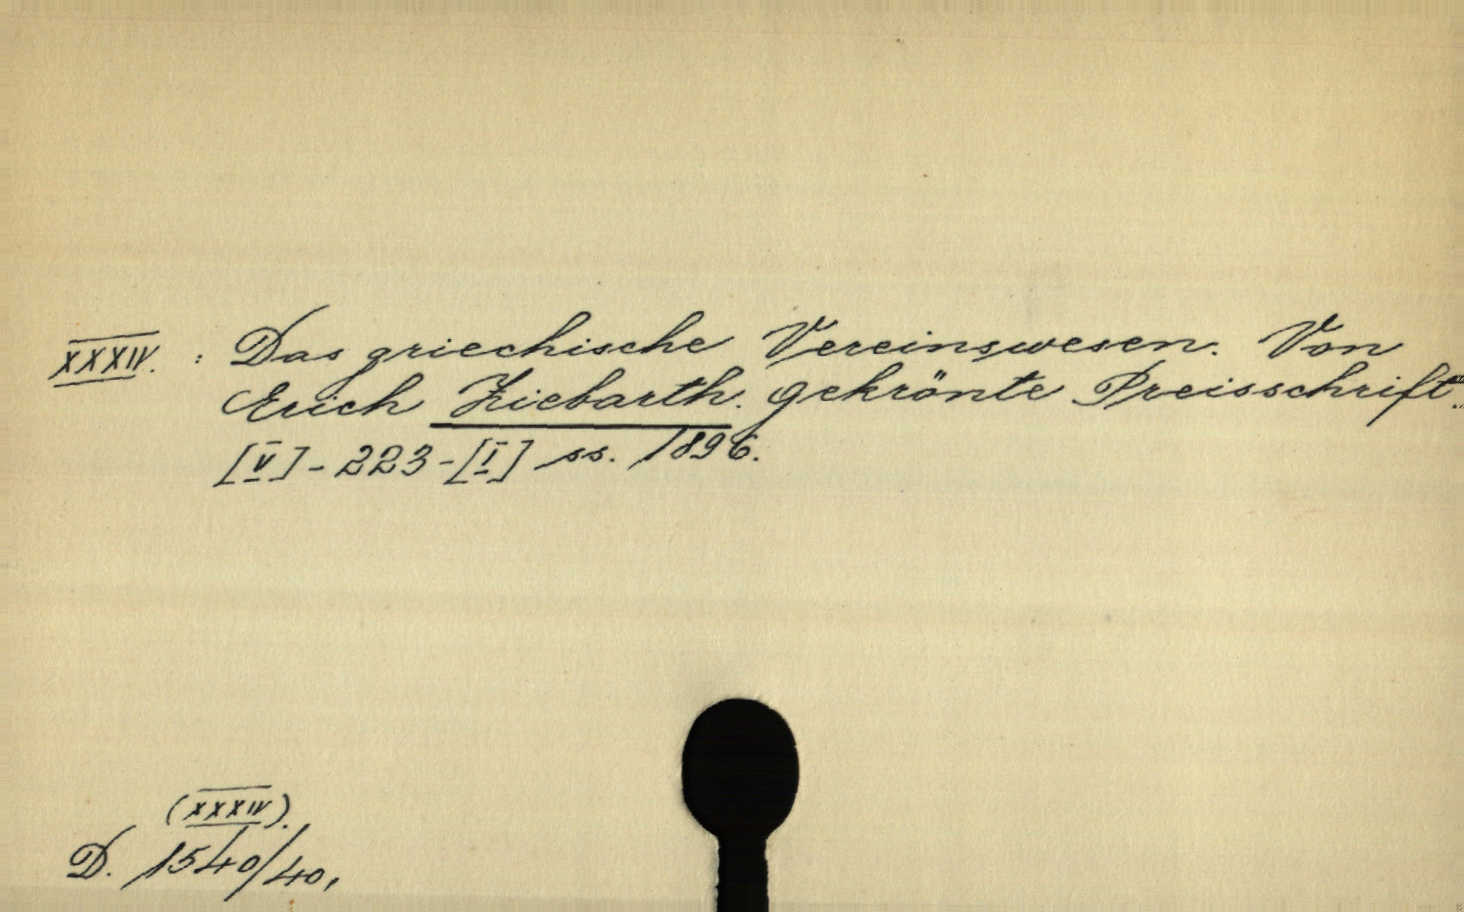 XXXIV. : Das griechische Vereinswesen. Von
Erich Ziebarth. Gekrönte Preisschrift.
[V] - 223 - [I] ss. 1896.
(XXXIV).
D. 1540/40.